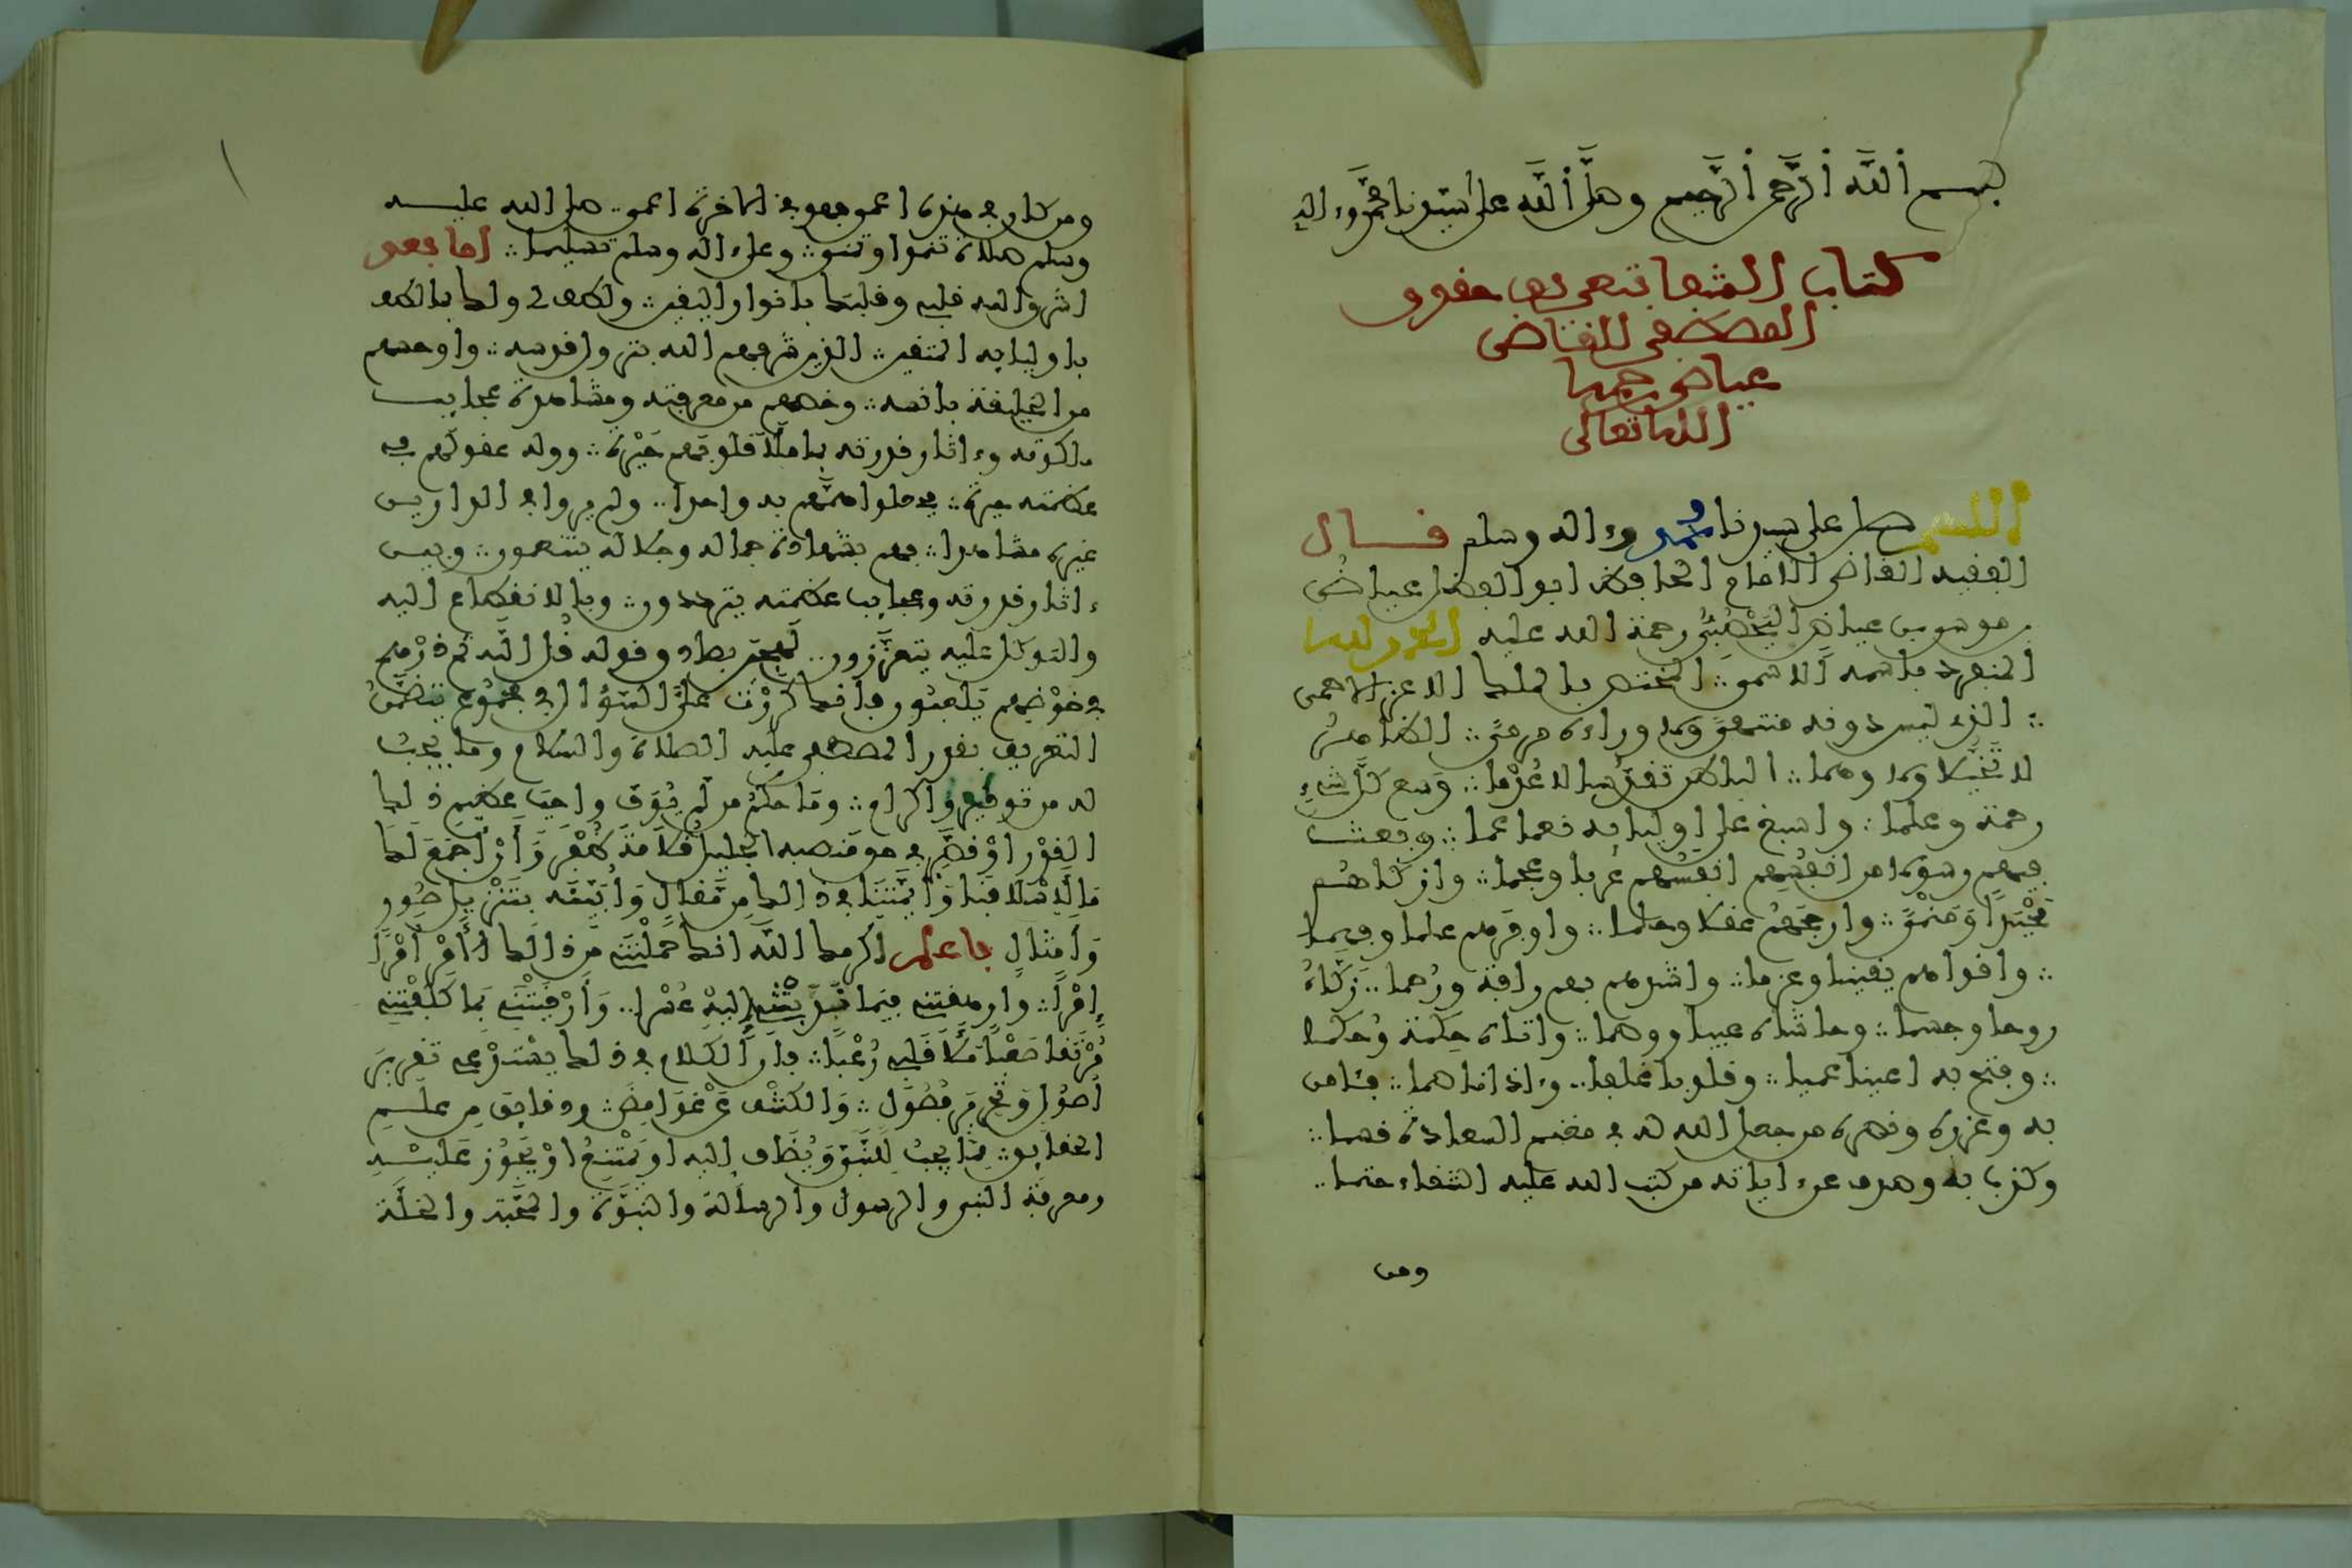 بسم الله الرحمن الرحيم وصلى الله على سيدنا محمد وءاله
كتاب الشفا بتعريف حقوق
المصطفى للقاضي
عياض رحمه
الله تعالى
اللهم صل على سيدنا محمد وءاله وسلم قال
الفقيه القاضي الامام الحافظ ابو الفضل عياض
بن موسى بن عياض اليحصبي رحمة الله عليه الحمد لله
المنفرد باسمه الاسمى ∴ المختص بالملك الاعز الاحمى
∴ الذي ليس دونه منتهى ولا وراءه مرمى ∴ الظاهر
لا تخيلا ولا وهما ∴ الباطن تقدسا لا عدما ∴ وسع كل شيء
رحمة وعلما ∴ واسبغ على اوليايه نعما عما ∴ وبعث
فيهم رسولا من انفسهم انفسهم عربا وعجما ∴ وازكاهم
محتدا ومنمى ∴ وارجحهم عقلا وحلما ∴ واوفرهم علما وفهما
∴ واقواهم يقينا وعزما ∴ واشدهم بهم رافة ورحما ∴ زكاه
روحا وجسما ∴ وحاشاه عيبا ووصما ∴ واتاه حكمة وحكما
∴ وفتح به اعينا عميا ∴ وقلوبا غلفا ∴ وءاذانا صما ∴ فئامن
به وعزره ونصره من جعل الله له في مغنم السعادة قسما ∴
وكذب به وصدف عن ءاياته من كتب الله عليه الشقاء حتما ∴
ومن
ومن كان في هذه اعمى فهو في الاخرة اعمى ∴ صلى الله عليه
وسلم صلاة تنموا وتنمى ∴ وعلى ءاله وسلم تسليما ∴ اما بعد
اشرق الله قلبي وقلبك بانوار اليقين ∴ ولطف لي ولك بما لطف
باوليايه المتقين ∴ الذين شرفهم الله بنزل قدسه ∴ واوحشهم
من الخليقة بانسه ∴ وخصهم من معرفته ومشاهدة عجايب
ملكوته وءاثار قدرته بما ملا قلوبهم حبرة ∴ ووله عقولهم في
عظمته حيرة ∴ فجعلوا همهم به واحدا ∴ ولم يروا في الدارين
غيره مشاهدا ∴ فهم بمشاهدة جماله وجلاله يتنعمون ∴ وبين
ءاثار قدرته وعجايب عظمته يترددون ∴ وبالانقطاع اليه
والتوكل عليه يتعززون ∴ لهجين بصادق قوله قل الله ثم ذرهم
في خوضهم يلعبون فانك كررت علي السؤال في مجموع يتضمن
التعريف بقدر المصطفى عليه الصلاة والسلام وما يجب
له من توقير واكرام ∴ وما حكم من لم يوف واجب عظيم ذلك
القدر او قصر في حق منصبه الجليل قلامة ظفر وان اجمع لك
ما لاسلافنا وائمتنا في ذلك من مقال وابينه بتنزيل صور
وامثال فاعلم اكرمك الله انك حملتني من ذلك امرا
إمرا ∴ وارهقتني فيما ندبتني إليه عسرا ∴ وارقيتني بما كلفتني
مرتقا صعبا ملا قلبي رعبا ∴ فإن الكلام في ذلك يستدعي تقرير
اصول وتحرير فصول ∴ والكشف عن غوامض ∴ ودقايق من علم
الحقايق ∴ مما يجب للنبي ويضاف إليه او يمتنع او يجوز عليه
ومعرفة النبي والرسول والرسالة والنبوة والمحبة والخلة